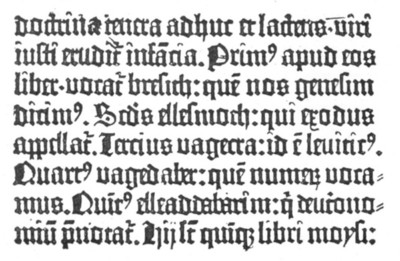 doctrina tenera adhuc et lactentis viri
iusti erudit̄ infācia. Primꝰ apud eos
liber· vocat̄ bresich: quē nos genesim
dicimꝰ. Scd̄s ellesmoth: qui exodus
appellat̄. Tercius vagecra: id ē leviticꝰ.
Quartꝰ vagedaber: quē numeꝝ voca-
mus. Quītꝰ elleaddabarim: q̇ deuc̄ono-
miū p̄notat̄. Hij sc̄ quīq; libri moysi: